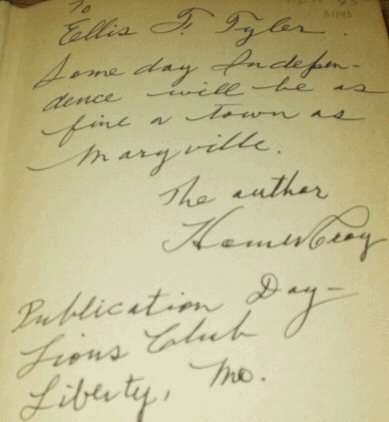 To
Ellis T. Tyler.
Some day Indepen-
dence will be as
fine a town as
Maryville.
The author
Homer Croy
Publication Day-
Lions Club
Liberty, Mo.